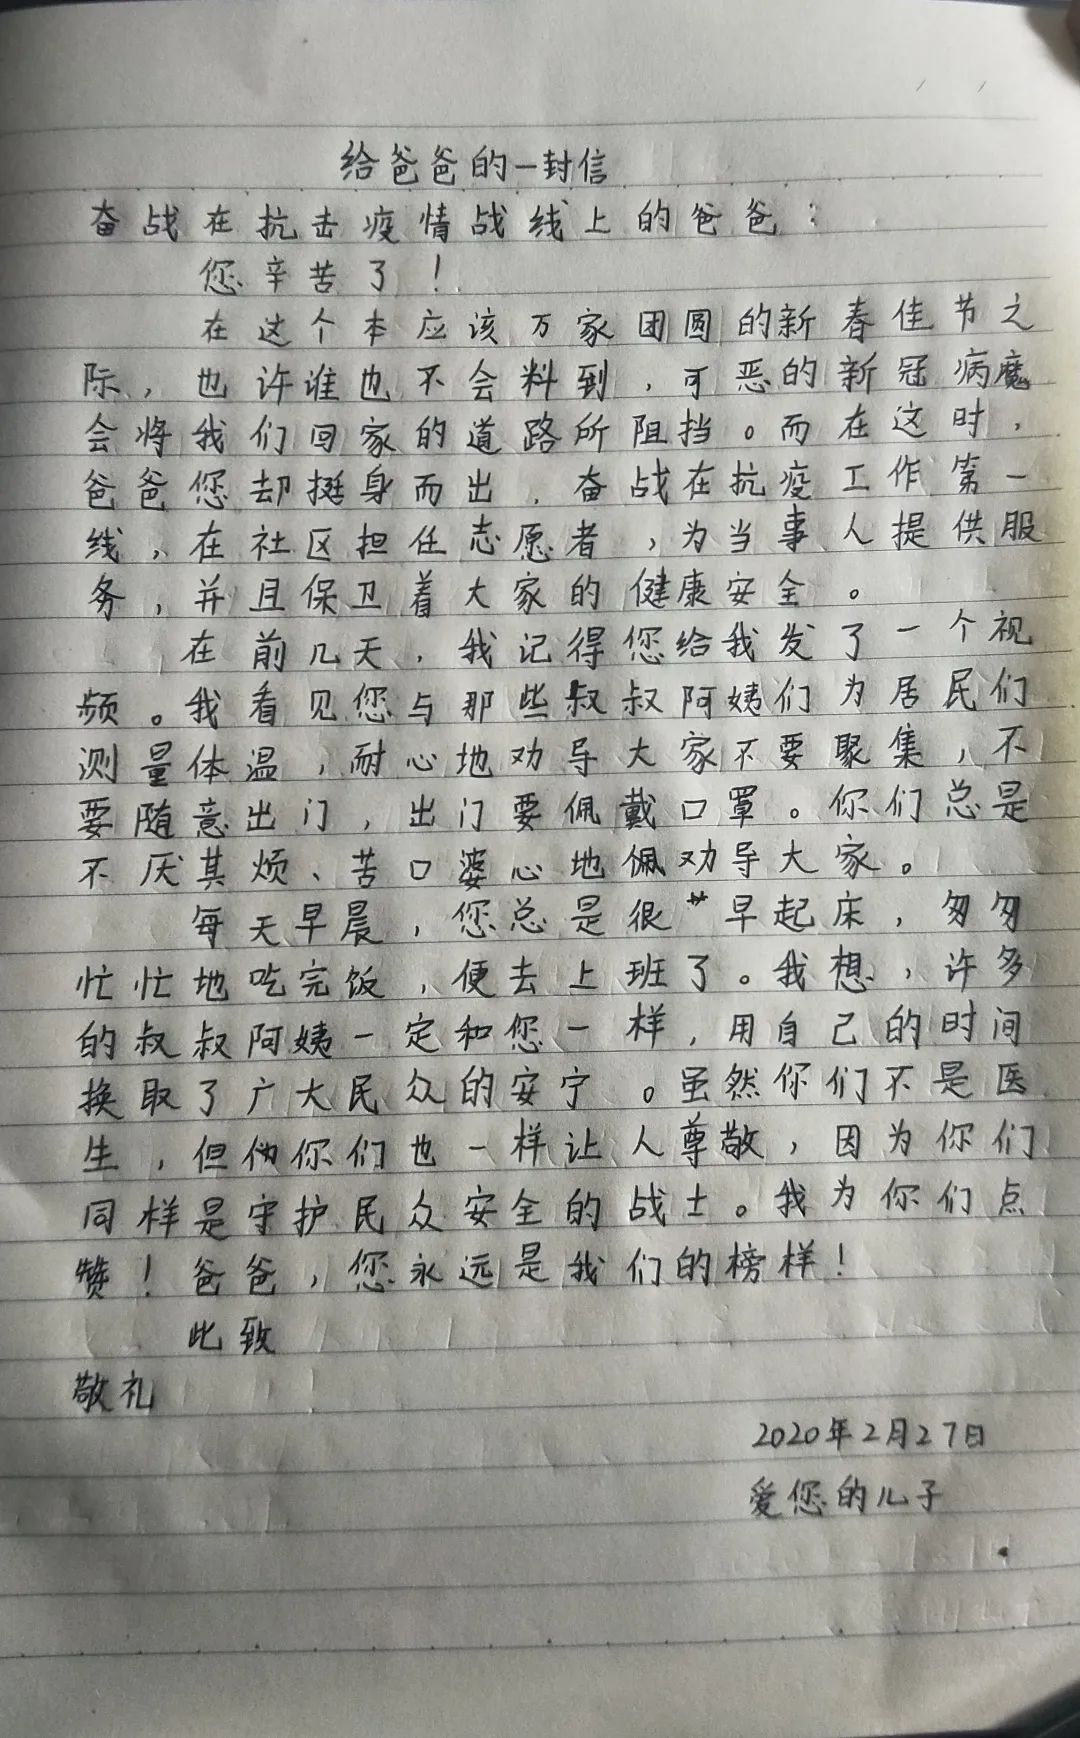 给爸爸的一封信
奋战在抗击疫情战线上的爸爸：
您辛苦了！
在这个本应该万家团圆的新春佳节之
际，也许谁也不会料到，可恶的新冠病魔
会将我们回家的道路所阻挡。而在这时，
爸爸您却挺身而出，奋战在抗疫工作第一
线，在社区担任志愿者，为当事人提供服
务，并且保卫着大家的健康安全。
在前几天，我记得您给我发了一个视
频。我看见您与那些叔叔阿姨们为居民们
测量体温，耐心地劝导大家不要聚集，不
要随意出门，出门要佩戴口罩。你们总是
不厌其烦、苦口婆心地佩劝导大家。
每天早晨，您总是很早起床，匆匆
忙忙地吃完饭，便去上班了。我想，许多
的叔叔阿姨一定和您一样，用自己的时间
换取了广大民众的安宁。虽然你们不是医
生，但你们也一样让人尊敬，因为你们
同样是守护民众安全的战士。我为你们点
赞！爸爸，您永远是我们的榜样！
此致
敬礼
2020年2月27日
爱您的儿子